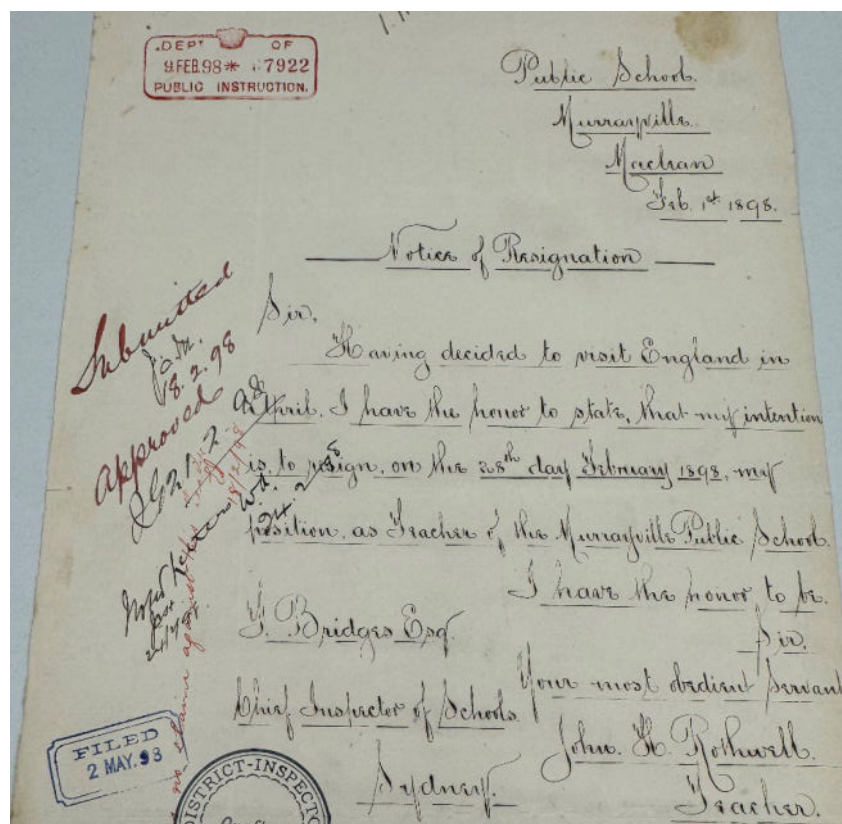 DEPT OF
9 FEB.98 * 7922
PUBLIC INSTRUCTION.
Public School.
Murrayville.
Maclean
Feb. 1st 1898.
Notice of Resignation
Sir,
Having decided to visit England in
April, I have the honor to state, that my intention
is, to resign, on the 28th day February 1898, my
position, as Teacher of the Murrayville Public School.
I have the honor, to be.
Sir,
Your most obedient Servant
John. H. Rothwell.
Teacher.
F. Bridges Esq.
Chief Inspector of Schools.
Sydney.
Submitted
18.2.98
Approved
21.2.98
18/2/98
24.2.98
no claim against
FILED
2 MAY.98
DISTRICT-INSPECTO